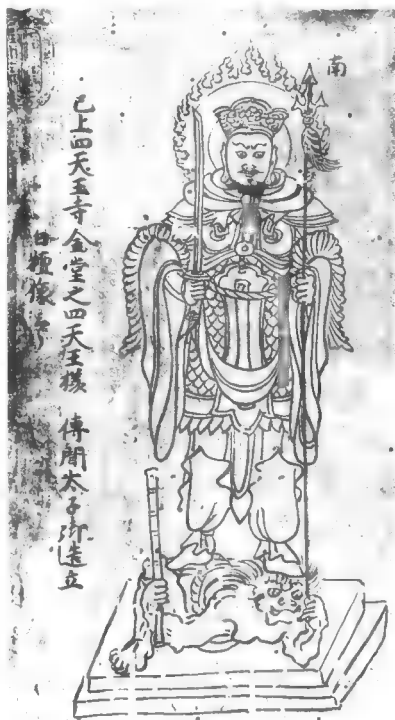 南
已上四天王寺金堂之四天王様 傳聞太子御造立